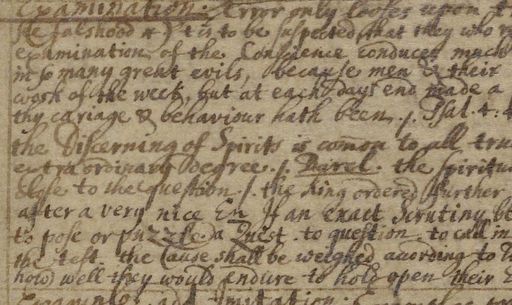 Examination. Error only looks upon
he falshood &c) t is to be suspected that they who
examination of the Conscience conduces much
in so many great evils, because men & their
work of the week, but at each days end made a
thy cariage & behaviour hath been ./. Psal. 4. 4
the Discerning of Spirits is com̄on to all tru
extraordinary degree ./. the Spiritu
close to the question ./. the King ordered further
after a very nice En If an exact Scrutiny be
to pose or puzzle. a Quest. to question. to call in
the test. the Cause shall be weighed according to
how well they would endure to hold open their
imitation.